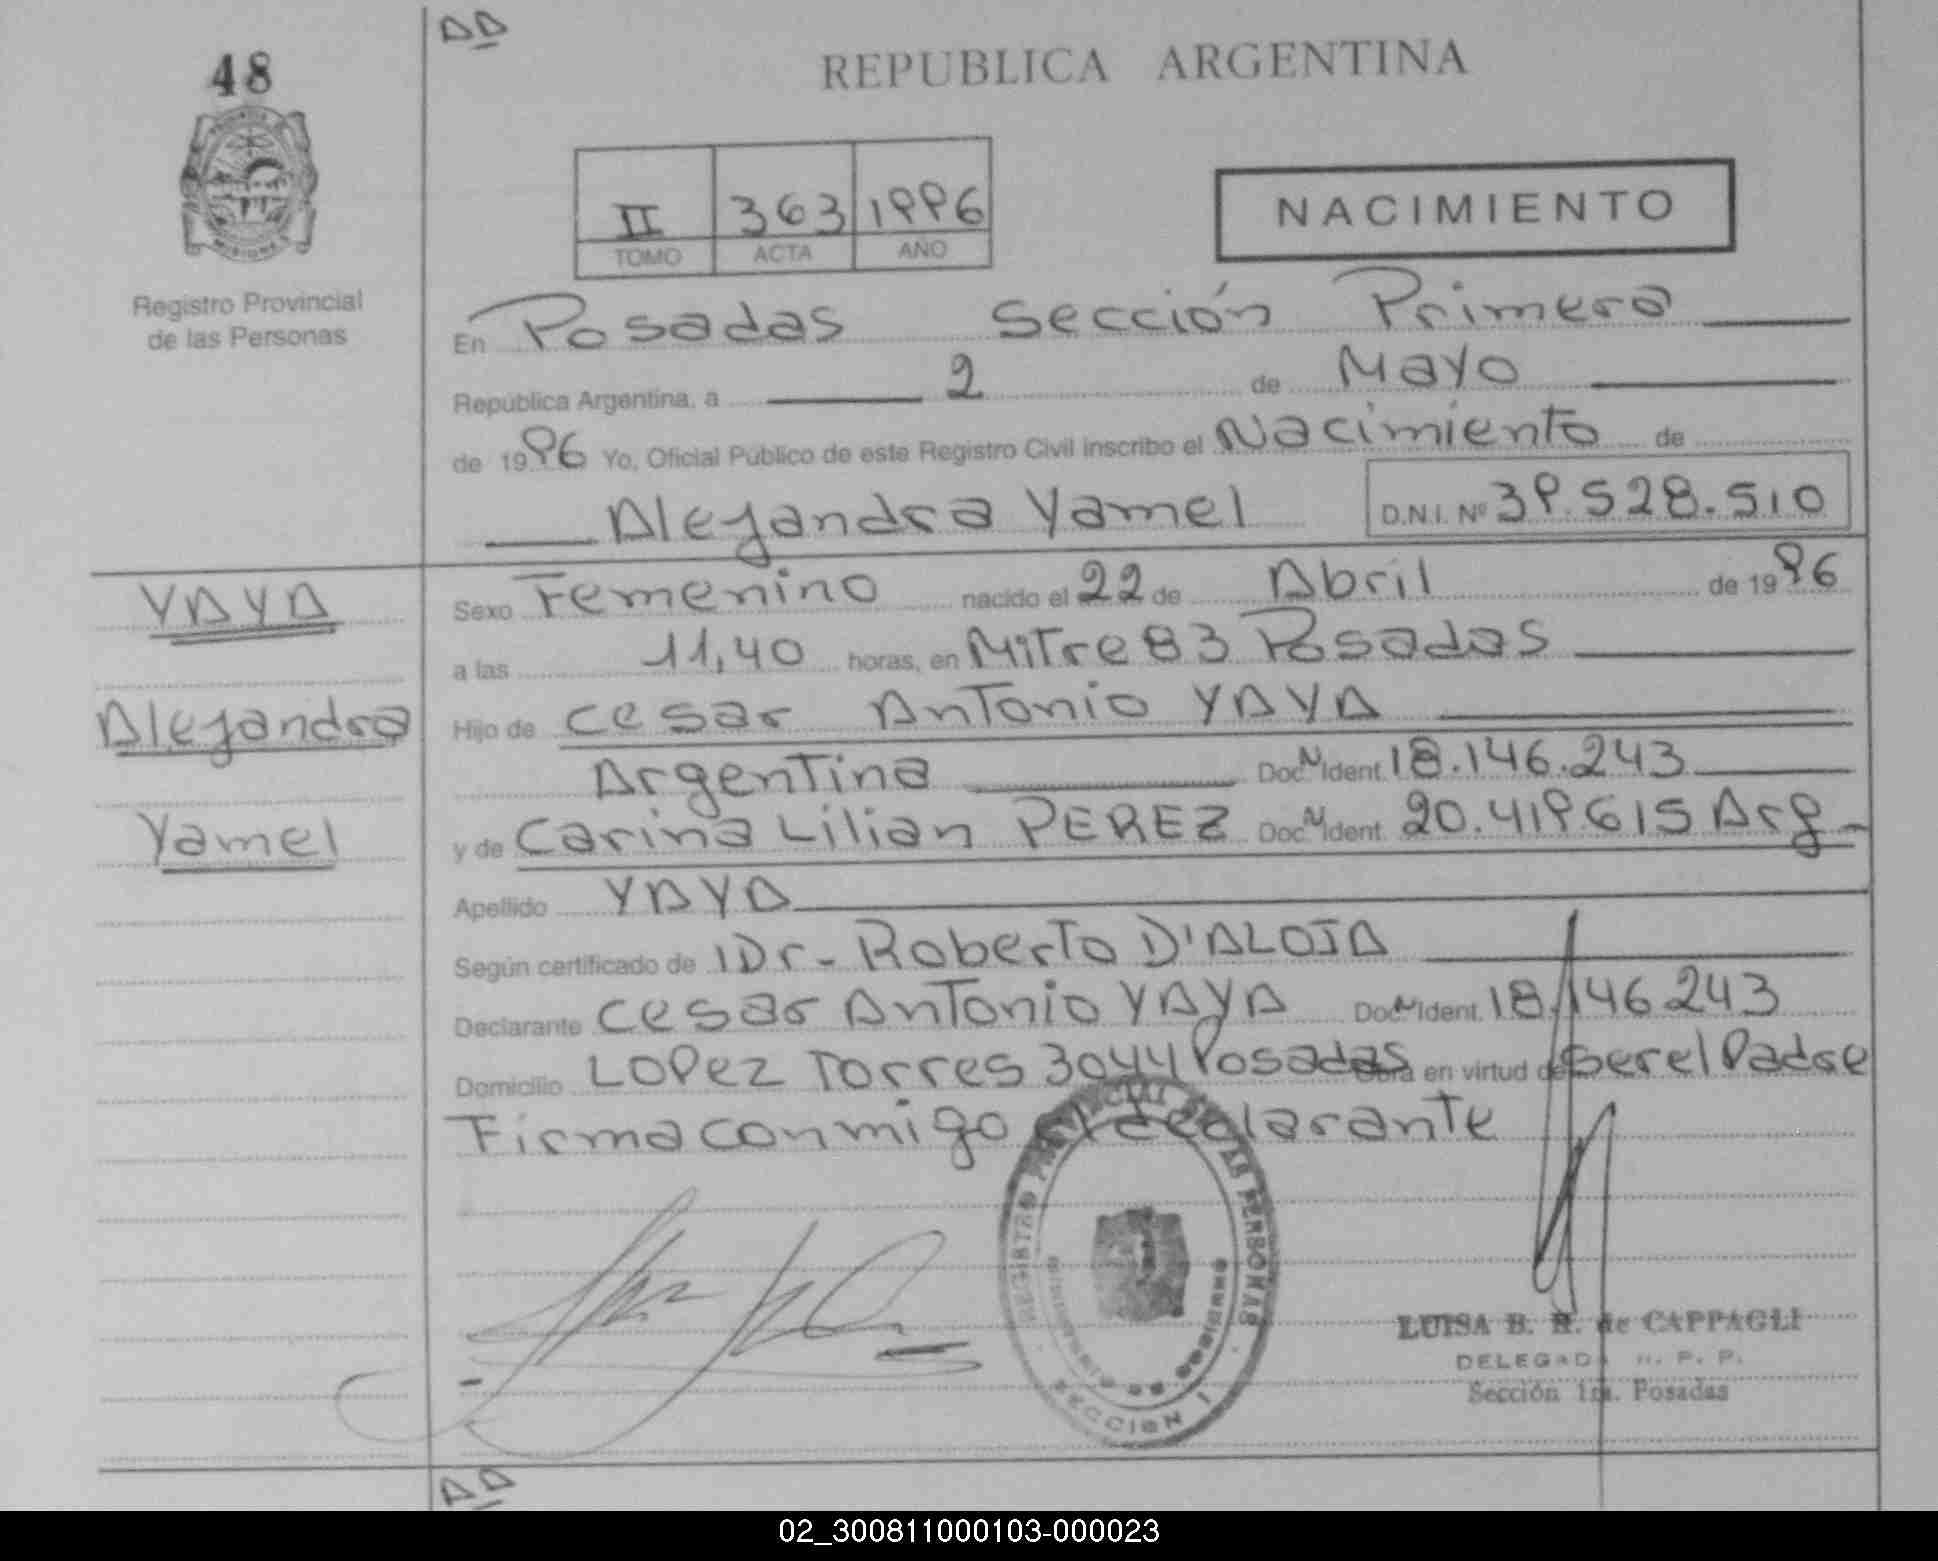 DD
48
REPUBLICA ARGENTINA
II 363 1996
TOMO ACTA AÑO
NACIMIENTO
Registro Provincial
de las Personas
En Posadas Sección Primera
República Argentina, a 2 de Mayo
de 1996 Yo, Oficial Público de este Registro Civil inscribo el Nacimiento de
Alejandra Yamel D.N.I. Nº 39.528.510
YAYA
Alejandra
Yamel
Sexo Femenino nacido el 22 de Abril de 1996
a las 11,40 horas, en Mitre 83 Posadas
Hijo de Cesar Antonio YAYA
Argentina Doc. N Ident. 18.146.243
y de Carina Lilian PEREZ Doc. N Ident. 20.419615 Arg-
Apellido YAYA
Según certificado de Dr- Roberto D'ALOIA
Declarante Cesar Antonio YAYA Doc. N Ident. 18.146243
Domicilio LOPez Torres 3044 Posadas Obra en virtud de ser el Padre
Firma conmigo el declarante
REGISTRO PROVINCIAL DE LAS PERSONAS
SECCION 1
LUISA B. R. de CAPPAGLI
DELEGADA R. P. P.
Sección 1ra. Posadas
DD
02_300811000103-000023